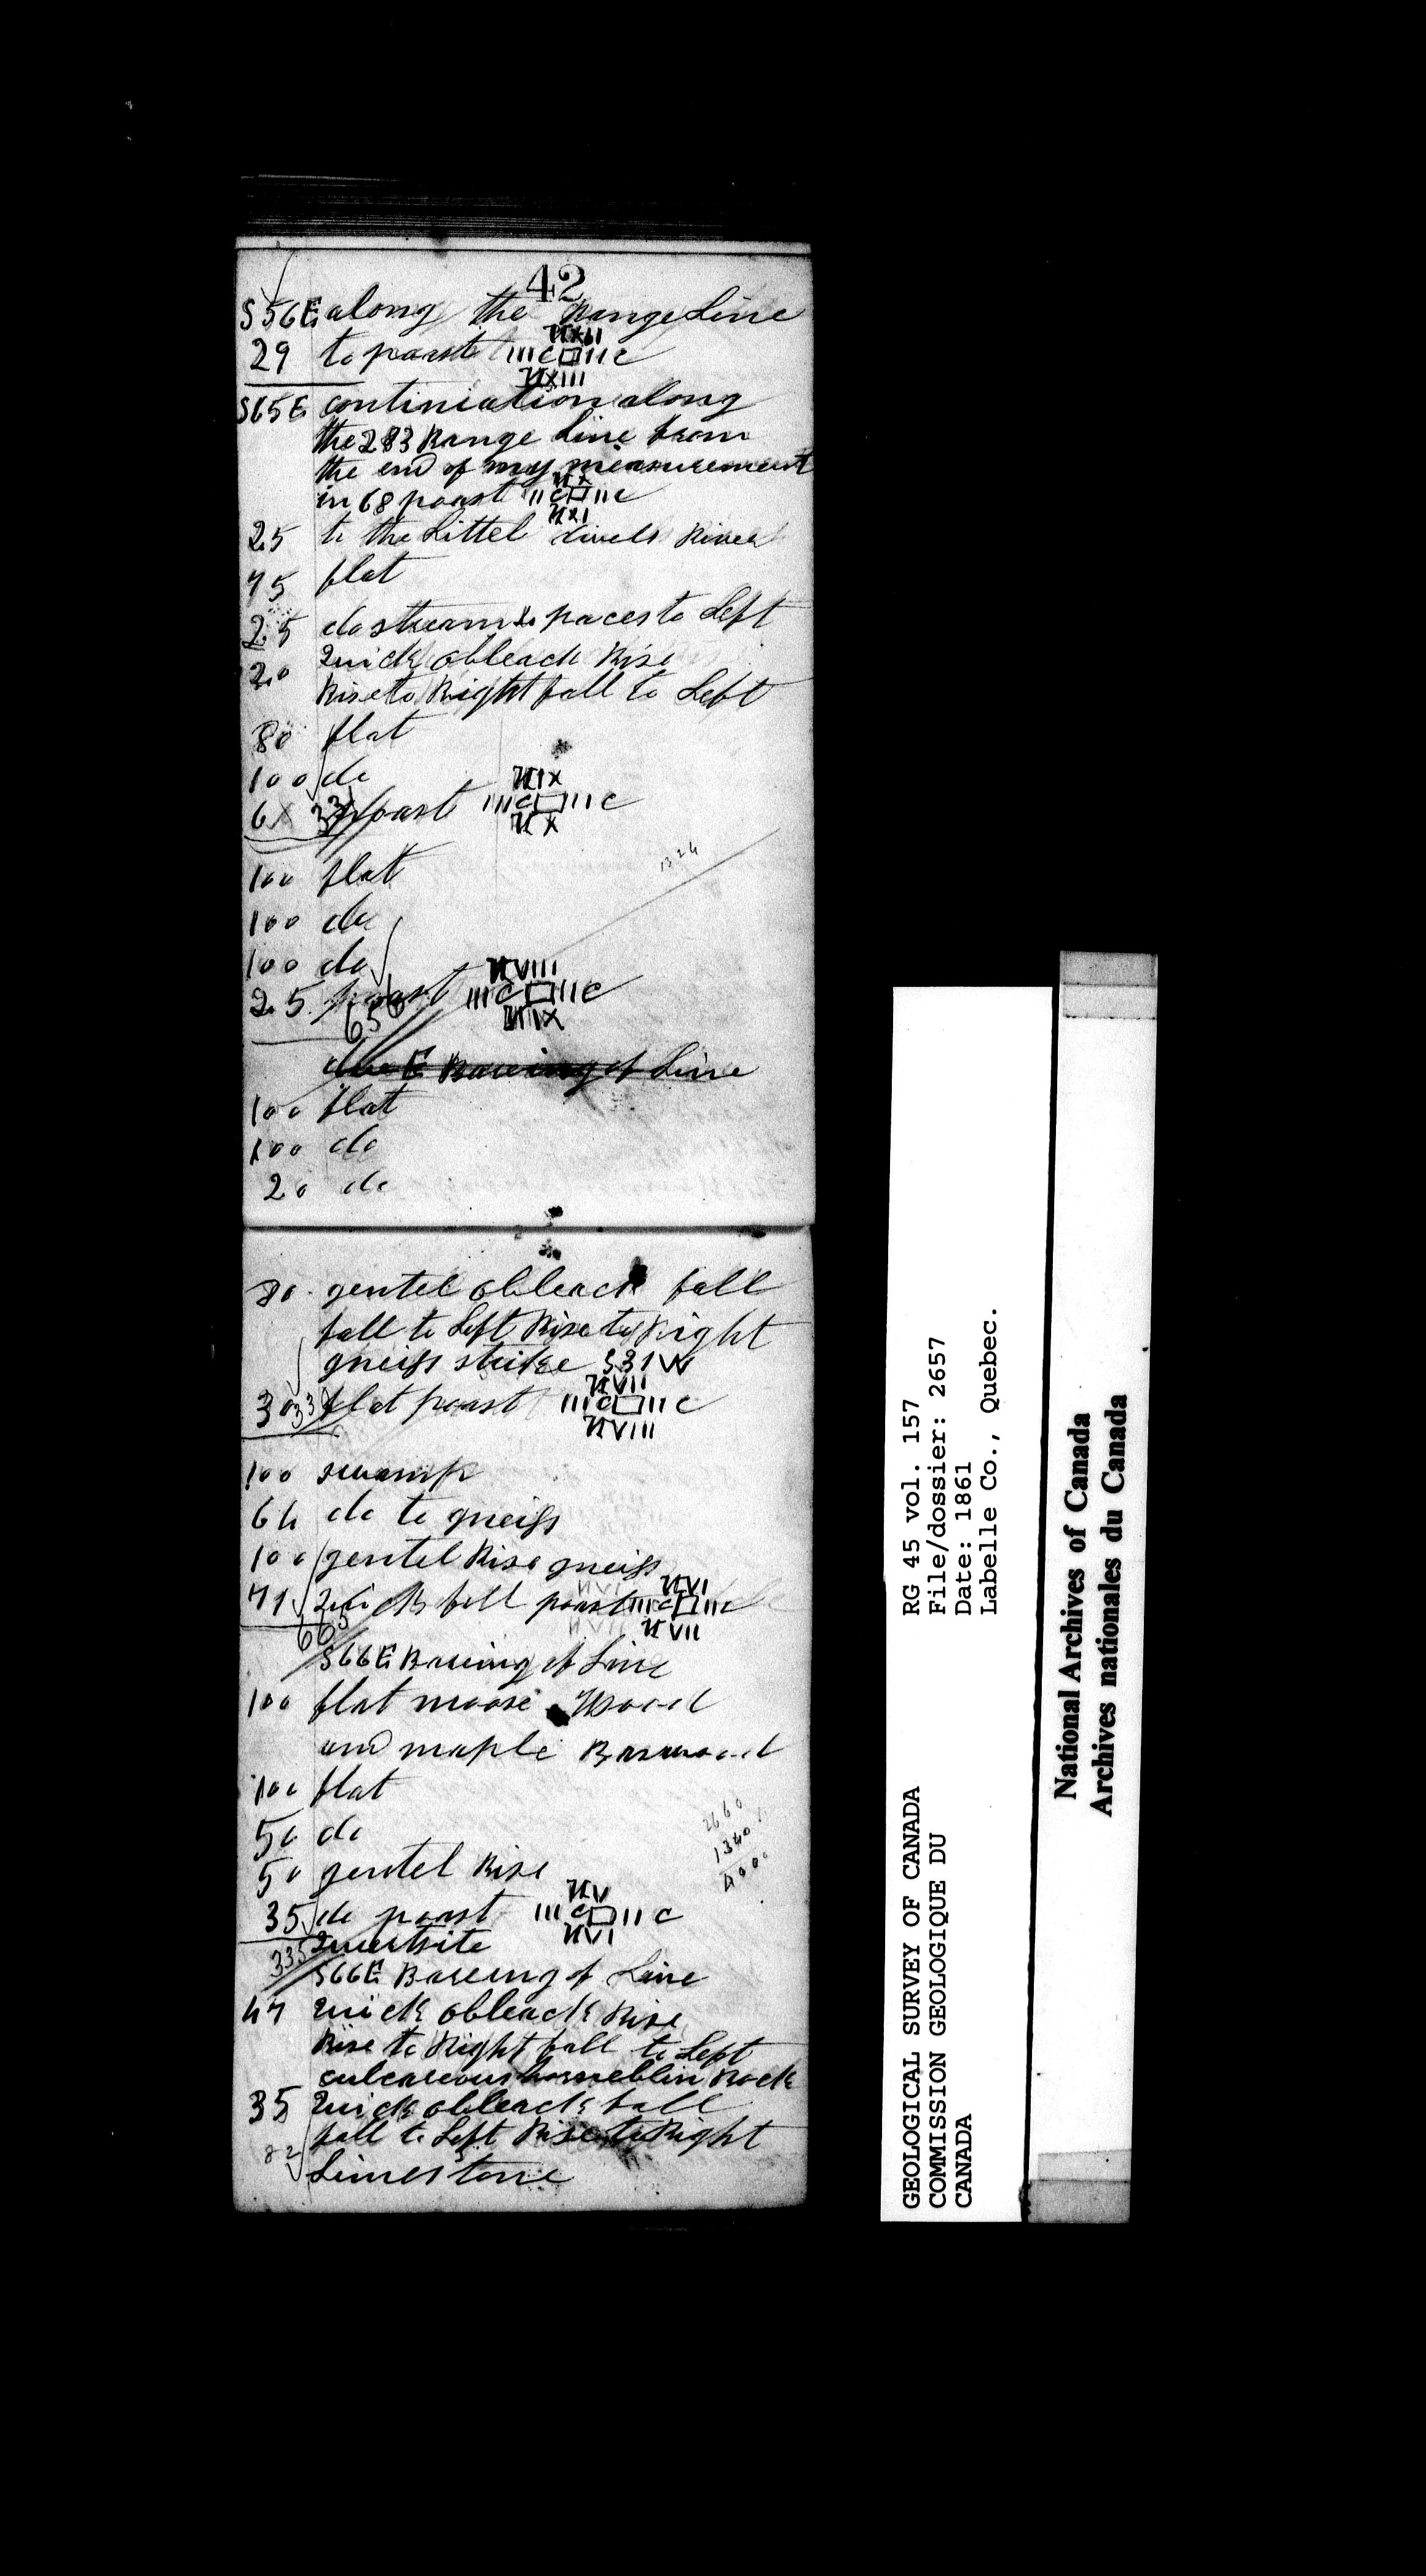 42
S56E along the Range Line
NXII
29 to poast IIIC□IIIC
NXIII
S65E continiation along
the 2&3 Range Line from
the end of my measurement
in 68 poast IIC□IIC
NX
NXI
25 to the Littel River
75 flat
25 do stream paces to Left
20 Quick obleack Rise
Rise to Right fall to Left
80 flat
100 do
NIX
6 331 poast IIIC□IIIC
NX
1324
100 flat
100 do
100 do
NVIII
25 poast IIIC□IIIC
656
NIX
Bareing of Line
100 flat
100 do
20 do
80 gentel obleack fall
fall to Left Rise to Right
gneiss strike S31W
NVII
30 330 flat poast IIIC□IIIC
NVIII
100 swamp
64 do to gneiss
100 gentel Rise gneiss
NVI
71 Quick fall poast IIIC□IIIC
NVII
665
S66E Bareing of Line
100 flat moose Wood
and maple Baswood
100 flat
50 do
2660
1340
4000
50 gentel Rise
NV
35 do poast IIIC□IIC
NVI
Quertsite
335
S66E Bareing of Line
47 Quick obleack Rise
Rise to Right fall to Left
culcareous horneblin Rock
35 Quick obleack fall
fall to Left Rise to Right
82
Limestone
GEOLOGICAL SURVEY OF CANADA
COMMISSION GEOLOGIQUE DU
CANADA
RG 45 vol. 157
File/dossier: 2657
Date: 1861
Labelle Co., Quebec.
National Archives of Canada
Archives nationales du Canada